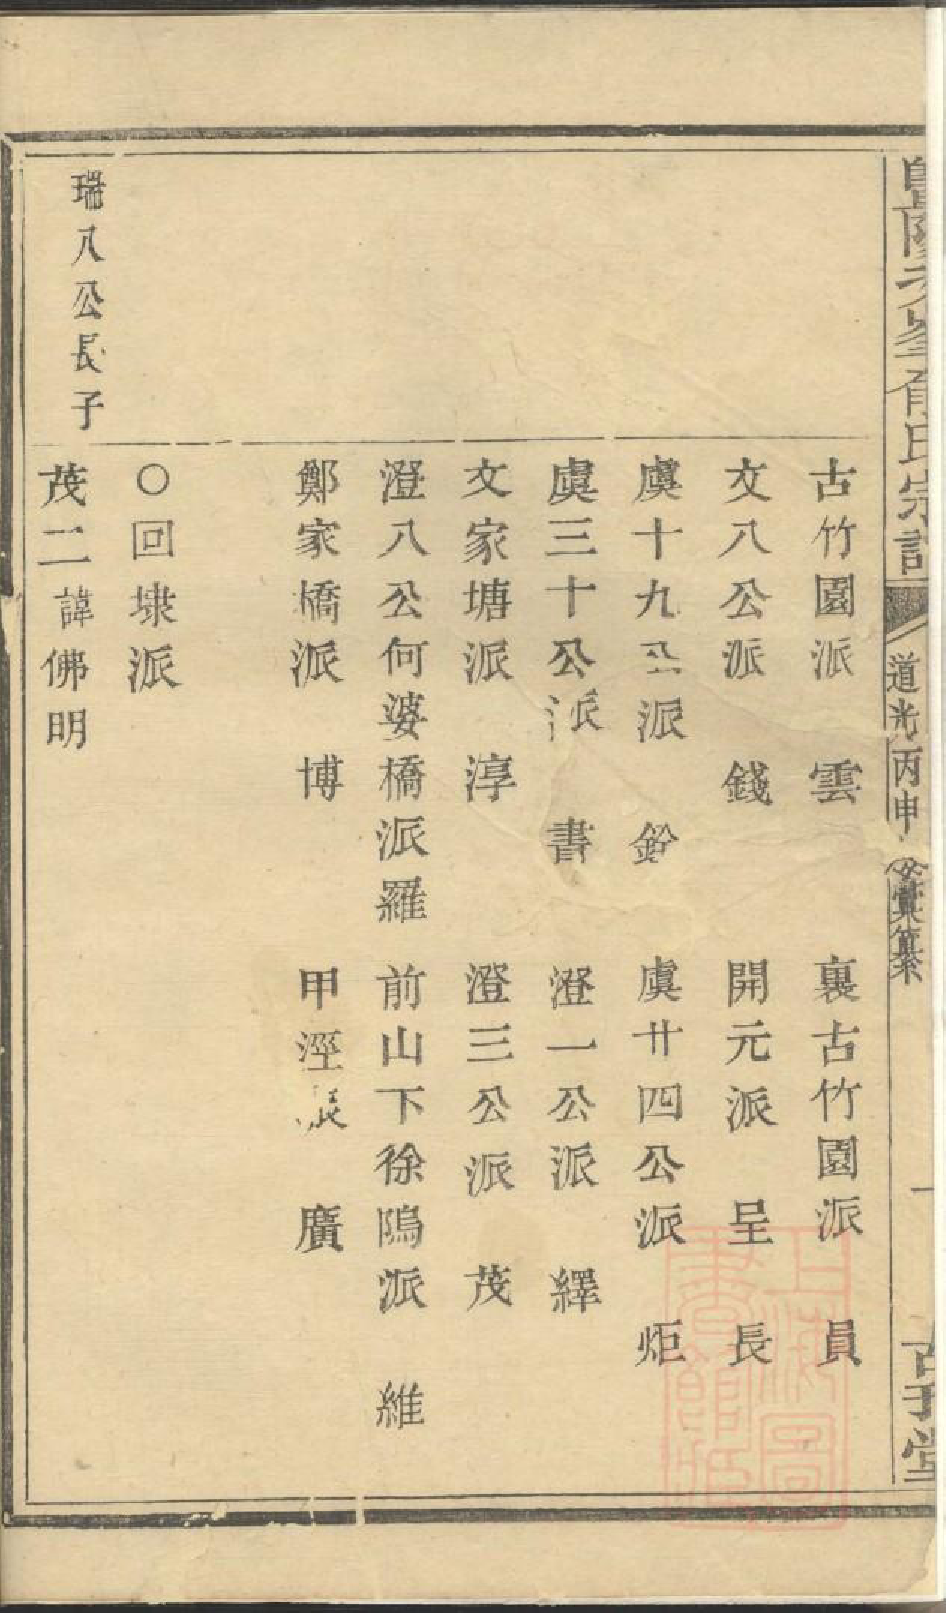 暨陽次峯俞氏宗譜
道光丙申 彙纂
一
古竹園派 雲 裏古竹園派 員
文八公派 錢 開元派 呈 長
虞十九公派 鈴 虞廿四公派 炬
虞三十公派 書 澄一公派 繹
文家塘派 淳 澄三公派 茂
澄八公何婆橋派 羅 前山下徐隝派 維
鄭家橋派 博 甲溼派 廣
〇回埭派
瑞八公長子
茂二 諱佛明
上海圖書館藏